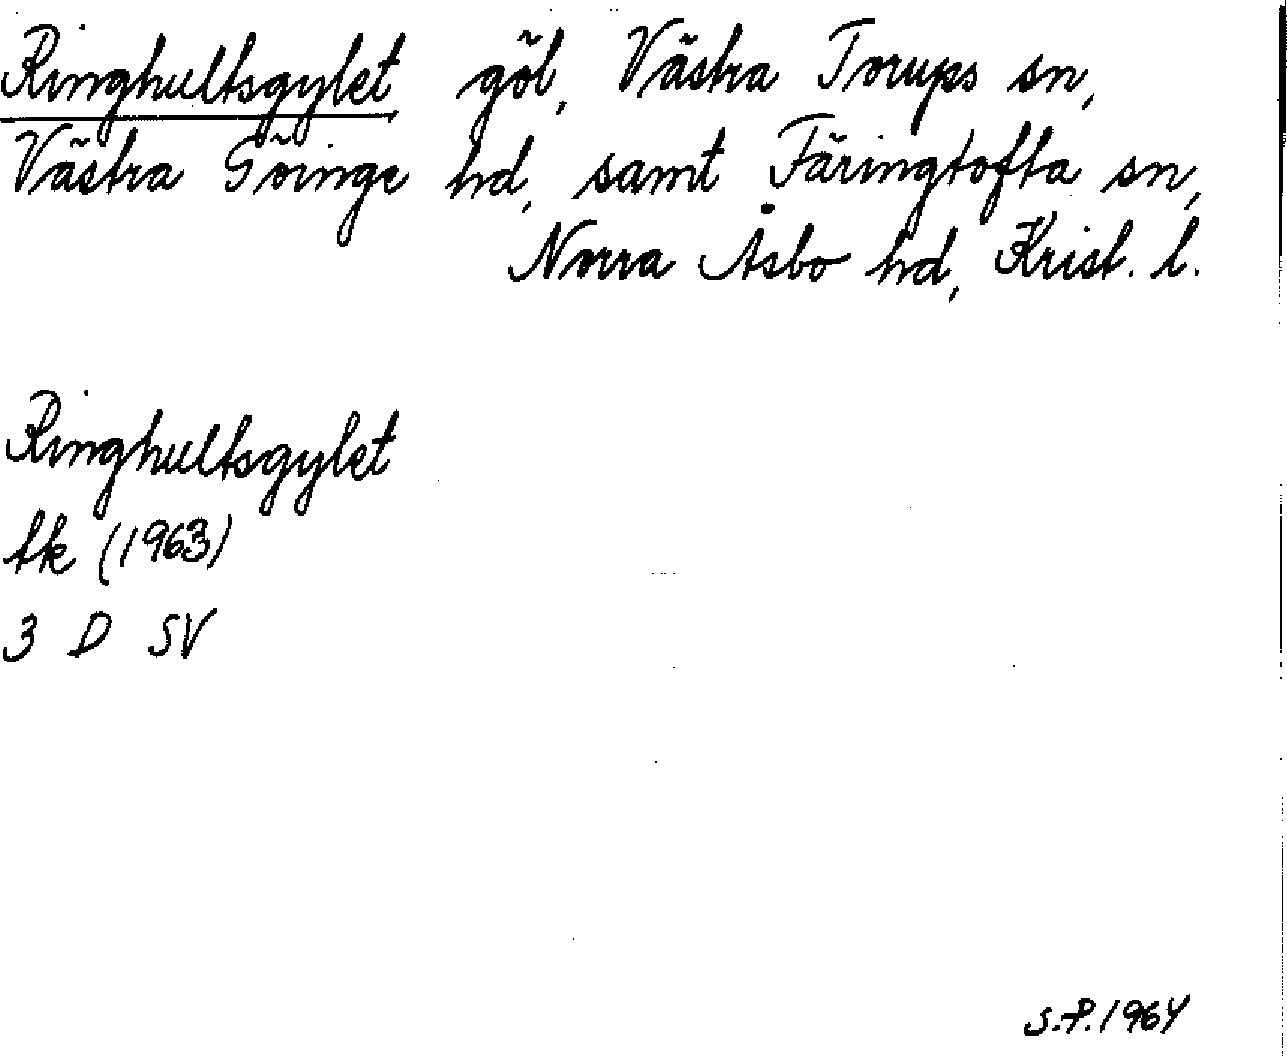 Ringhultsgylet göl, Västra Torups sn,
Västra Göinge hd, samt Färingtofta sn,
Norra Åsbo hd, Krist. l.
Ringhultsgylet
tk (1963)
3 D SV
S.P. 1964